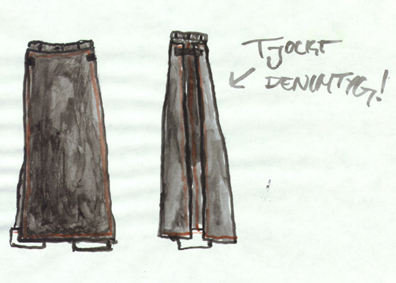 TJOCKT
DENIMTYG!